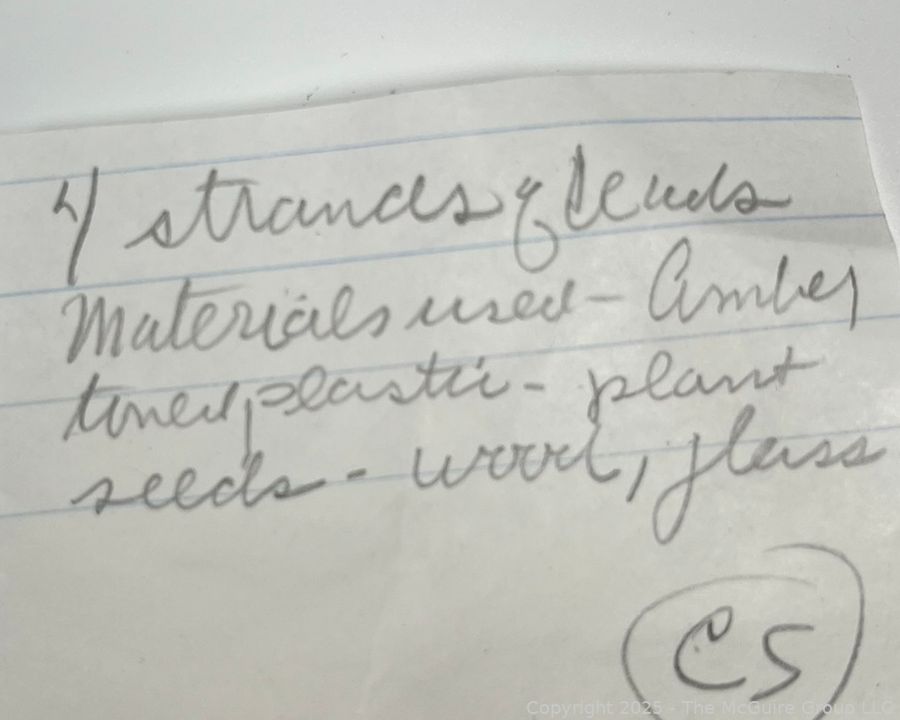 4 strands of beads
Materials used - Amber
toned plastic - plant
seeds - wood, glass
CS
Copyright 2025 - The McGuire Group LLC